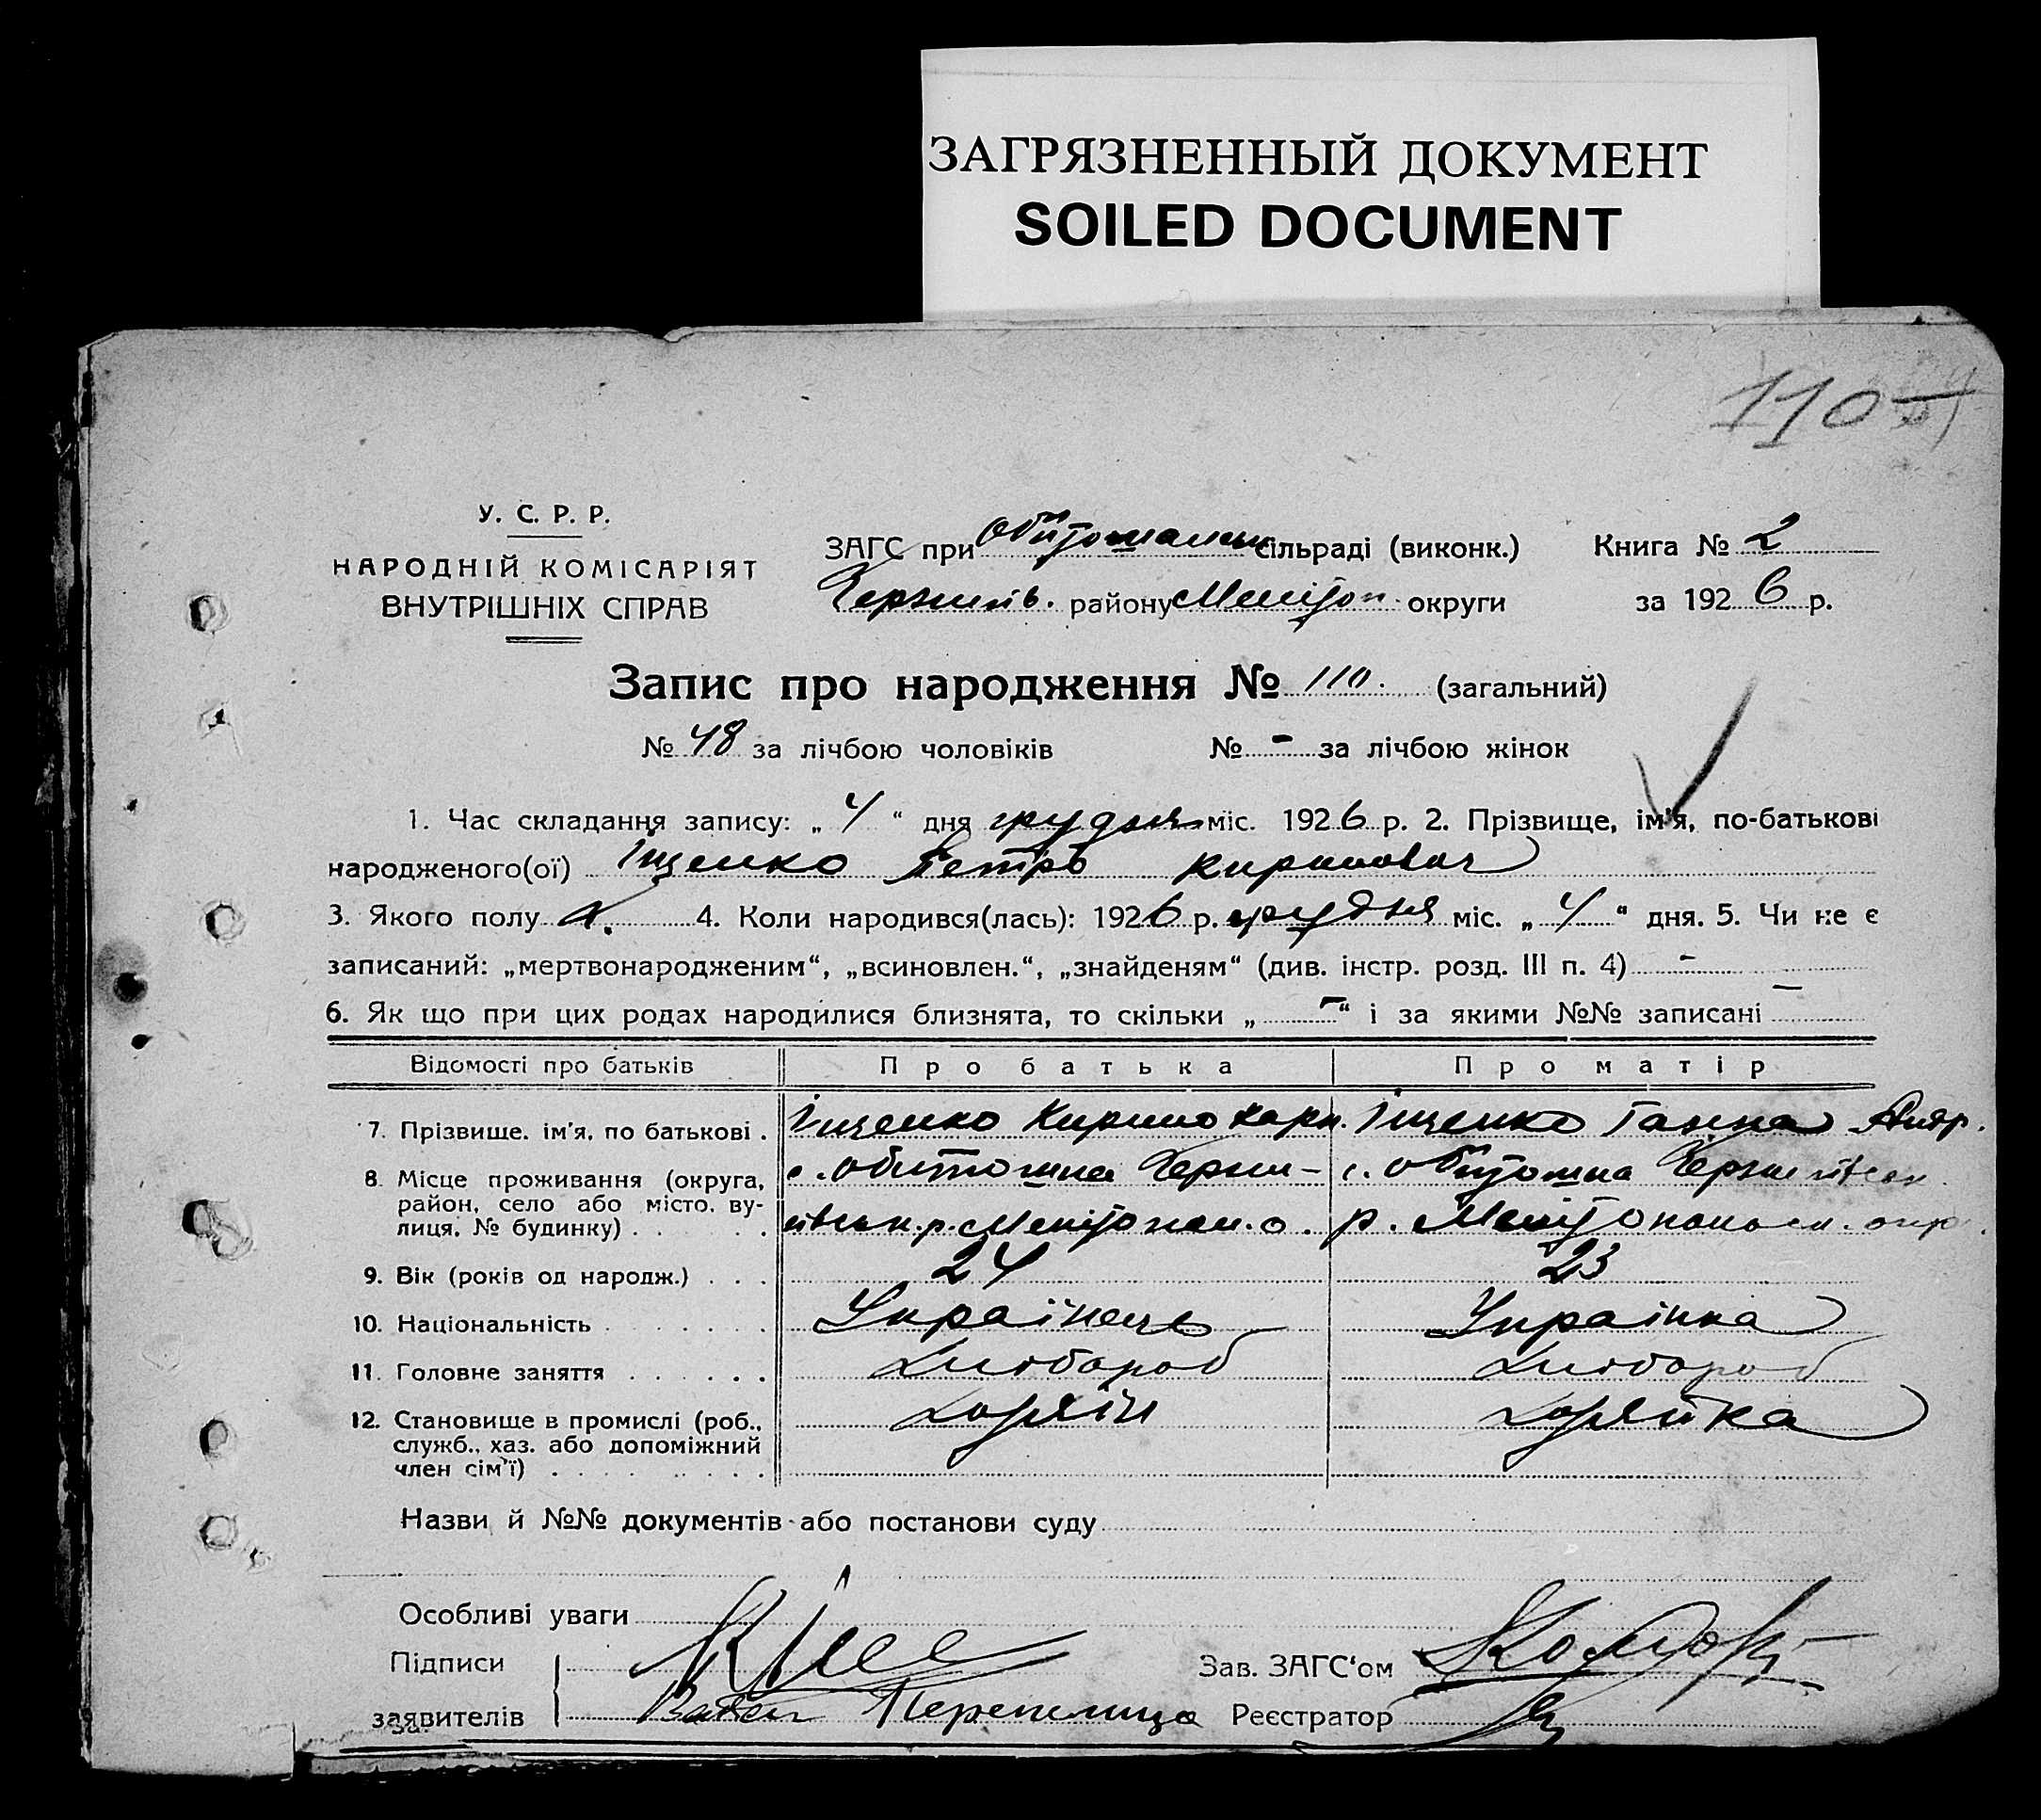 ЗАГРЯЗНЕННЫЙ ДОКУМЕНТ
SOILED DOCUMENT
110
У. С. Р. Р.
НАРОДНІЙ КОМІСАРІЯТ
ВНУТРІШНІХ СПРАВ
ЗАГС при Обитошанськ сільраді (виконк.) Книга № 2
Черниг в. району Мелітоп. округи за 1926 р.
Запис про народження № 110. (загальний)
№ 48 за лічбою чоловіків № - за лічбою жінок
1. Час складання запису: „ 4 “ дня грудня міс. 1926 р. 2. Прізвище, ім'я, по-батькові
народженого(ої) Іщенко Петро Кирилович
3. Якого полу ч. 4. Коли народився(лась): 1926 р. грудня міс. „ 4 “ дня. 5. Чи не є
записаний: „мертвонародженим“, „всиновлен.“, „знайденям“ (див. інстр. розд. III п. 4) -
6. Як що при цих родах народилися близнята, то скільки „ - “ і за якими №№ записані -
Відомості про батьків Про батька Про матір
7. Прізвище, ім'я, по батькові . Іщенко Кирило Карп. Іщенко Ганна
8. Місце проживання (округа, район, село або місто, вулиця, № будинку) . с. Обитошна Черни- с. Обитошна
р. Мелітопол. о. р. Мелітопольськ. окр.
9. Вік (років од народж.) . . . 24 23
10. Національність . Українець Українка
11. Головне заняття . . . . . . Хлібороб Хлібороб
12. Становище в промислі (роб., служб., хаз. або допоміжний член сім'ї) . Хазяїн Хазяйка
Назви й №№ документів або постанови суду
Особливі уваги
Підписи
заявителів Перепелица
Зав. ЗАГС'ом
Реєстратор